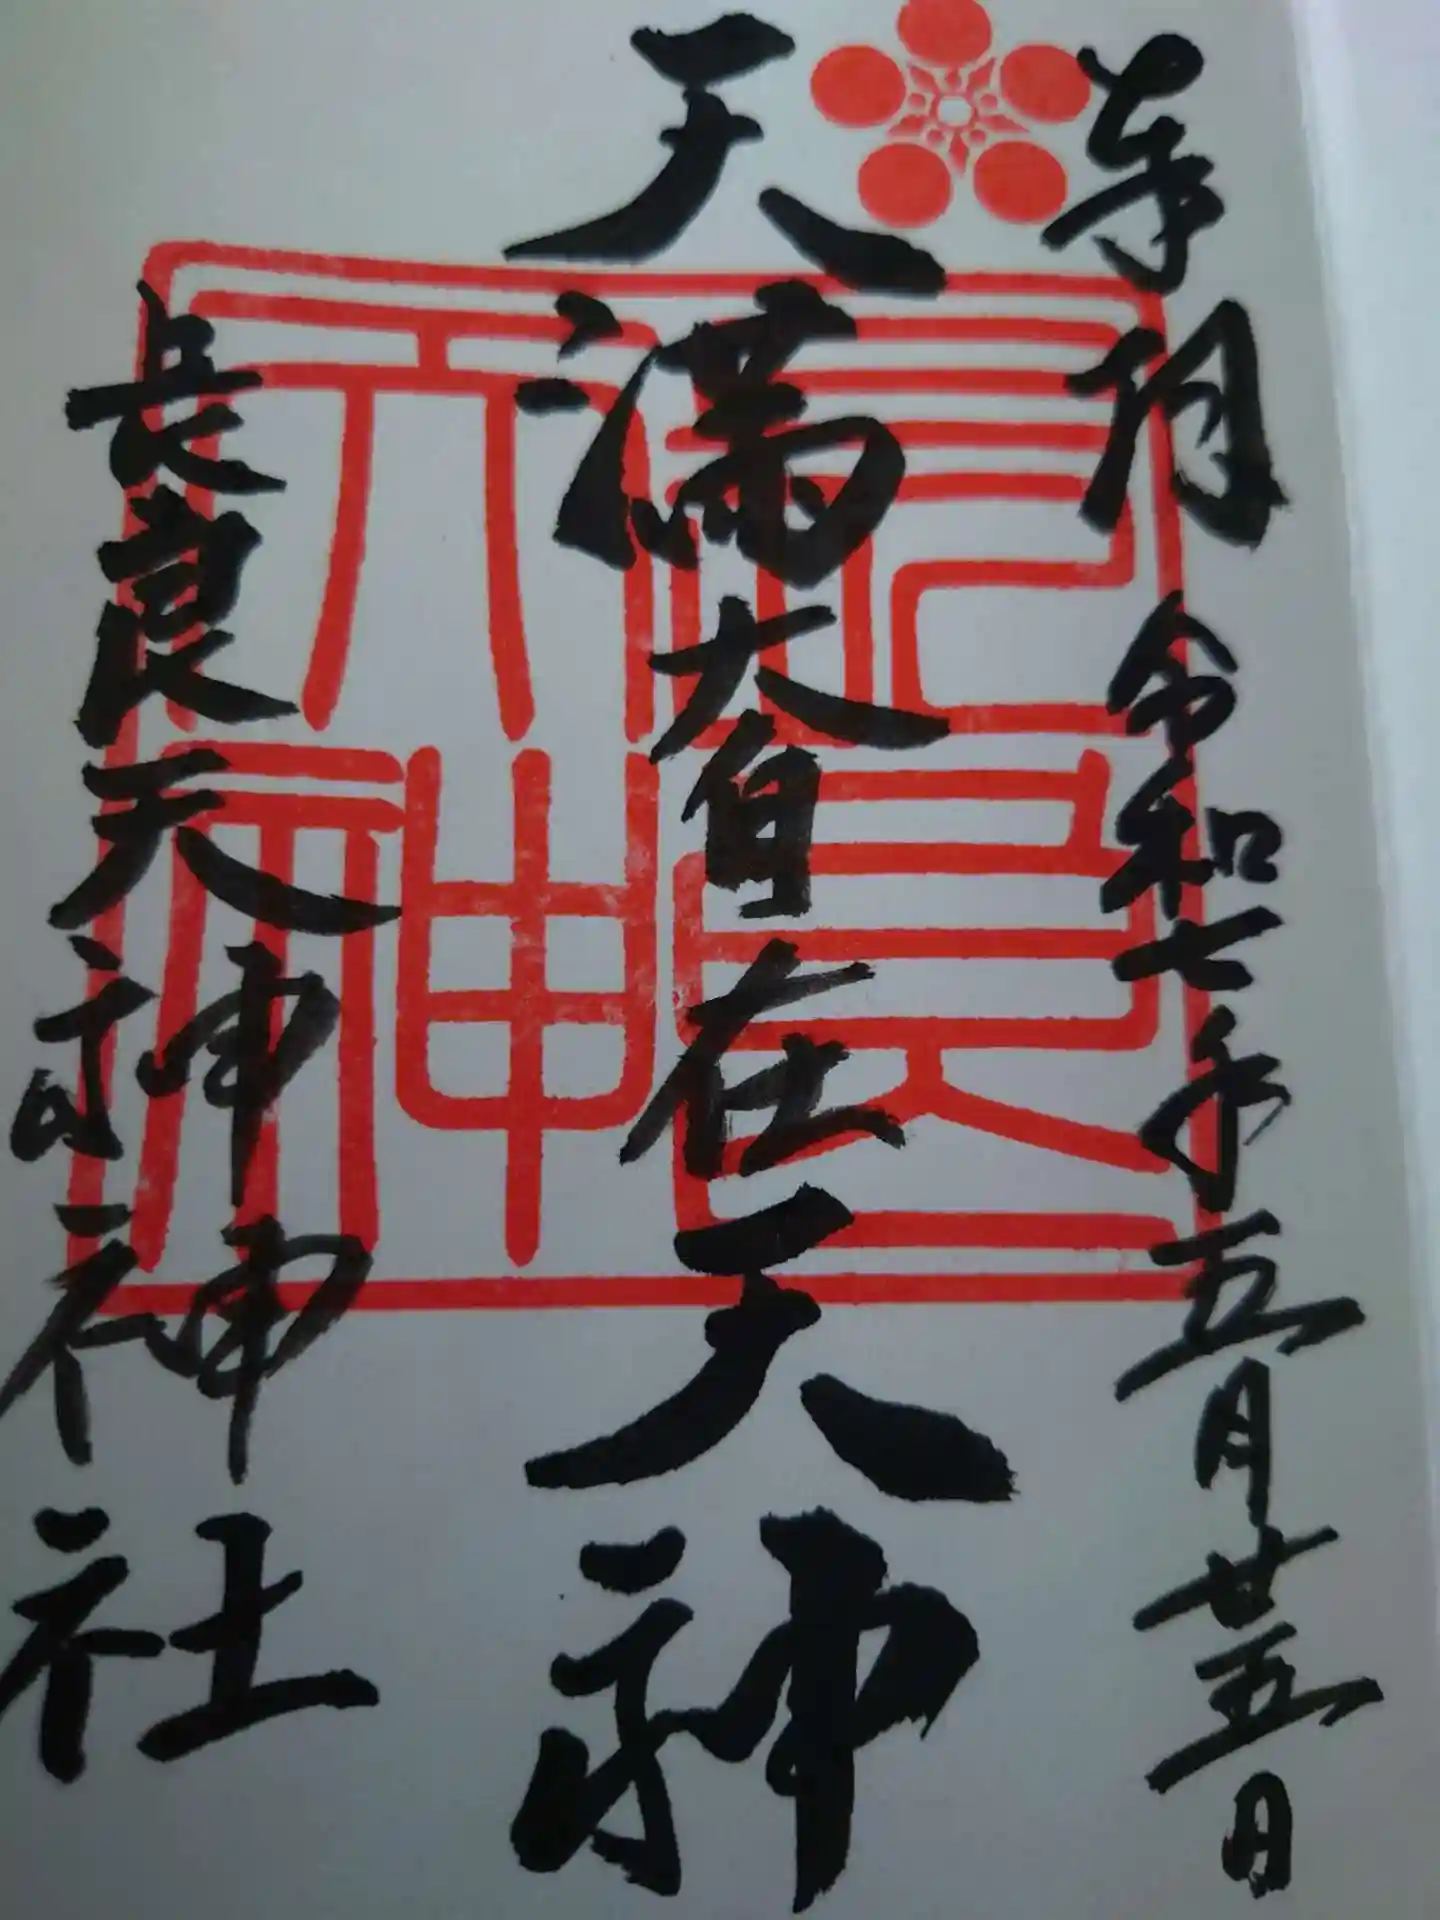 奉拝 令和七年五月廿五日
天満大自在天神
長良天神神社
長良
天神